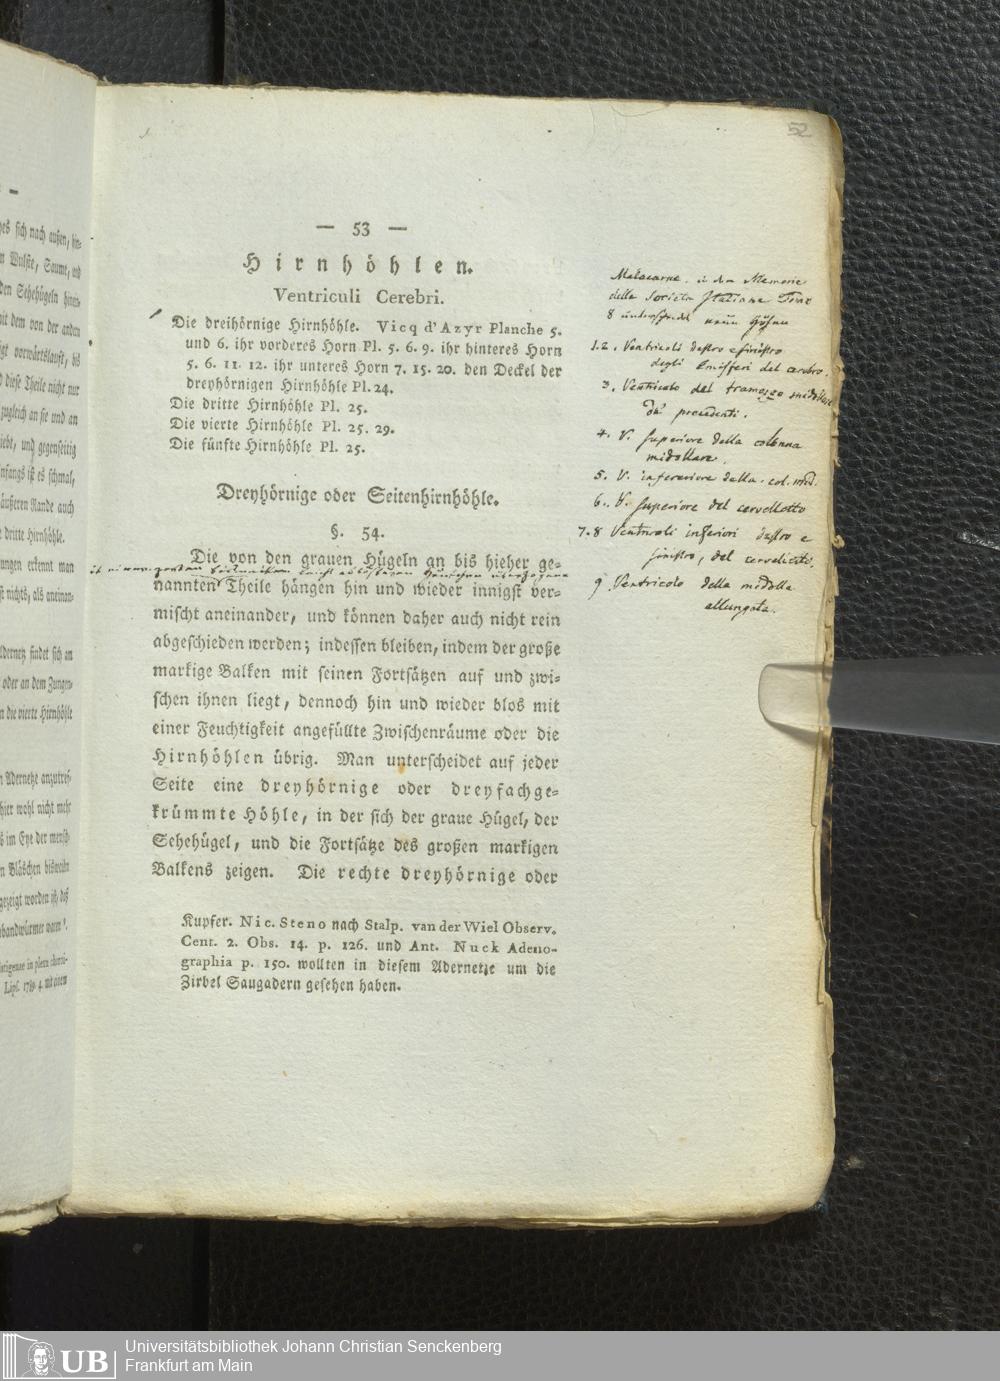 52
— 53 —
Hirnhöhlen.
Ventriculi Cerebri.
Die dreihörnige Hirnhöhle. Vicq d'Azyr Planche 5.
und 6. ihr vorderes Horn Pl. 5. 6. 9. ihr hinteres Horn
5. 6. 11. 12. ihr unteres Horn 7. 15. 20. den Deckel der
dreyhörnigen Hirnhöhle Pl. 24.
Die dritte Hirnhöhle Pl. 25.
Die vierte Hirnhöhle Pl. 25. 29.
Die fünfte Hirnhöhle Pl. 25.
Dreyhörnige oder Seitenhirnhöhle.
§. 54.
Die von den grauen Hügeln an bis hieher ge-
nannten Theile hängen hin und wieder innigst ver-
mischt aneinander, und können daher auch nicht rein
abgeschieden werden; indessen bleiben, indem der große
markige Balken mit seinen Fortsätzen auf und zwi-
schen ihnen liegt, dennoch hin und wieder blos mit
einer Feuchtigkeit angefüllte Zwischenräume oder die
Hirnhöhlen übrig. Man unterscheidet auf jeder
Seite eine dreyhörnige oder dreyfachge-
krümmte Höhle, in der sich der graue Hügel, der
Sehehügel, und die Fortsätze des großen markigen
Balkens zeigen. Die rechte dreyhörnige oder
Kupfer. Nic. Steno nach Stalp. van der Wiel Observ.
Cent. 2. Obs. 14. p. 126. und Ant. Nuck Adeno-
graphia p. 150. wollten in diesem Adernetze um die
Zirbel Saugadern gesehen haben.
Malacarne in den Memorie
della Societa Italiana Tom
8 unterscheidet neun
1.2. Ventricoli destro e sinistro
degli Emisferi del cerebro.
3. Ventricolo del tramezzo midollare
precedenti.
4. V. superiore della colonna
midollare.
5. V. inferiore della col. mid.
6. V. superiore del cervelletto
7.8 Ventricoli inferiori destro e
sinistro, del cervelletto.
9 Ventricolo della midolla
allungata.
Universitätsbibliothek Johann Christian Senckenberg
Frankfurt am Main
UB